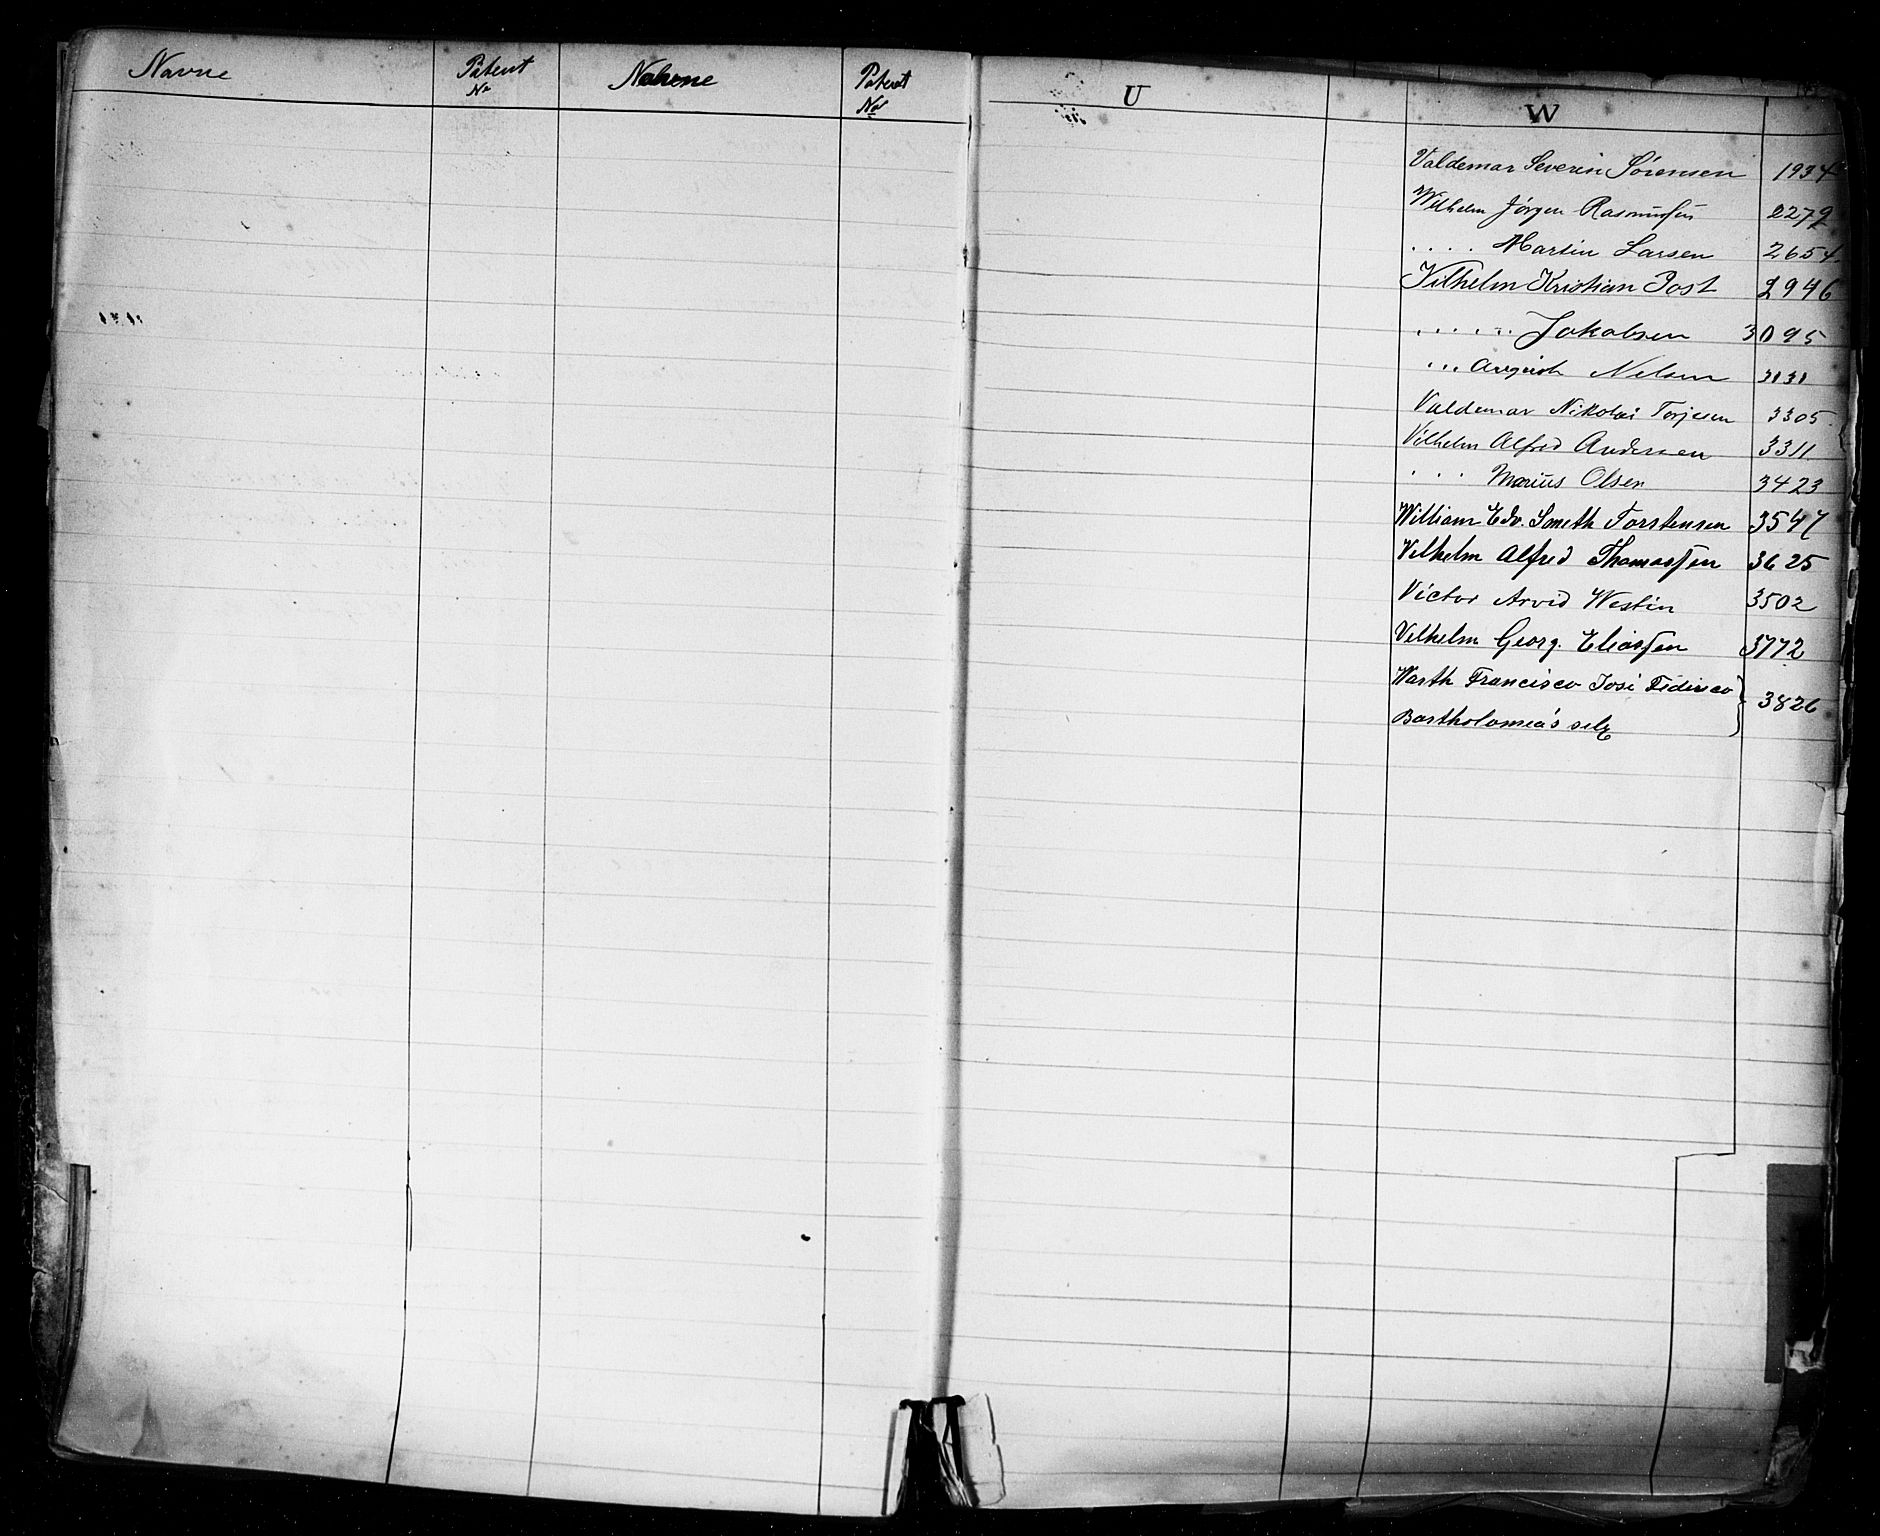 Navne
Patent
No
Nahvne
Patent
No
U
W
Valdemar Severin Sørensen 1934
Wilhelm Jørgen Rasmussen 2279
. . . . Martin Larsen 2654.
Vilhelm Kristian Post 2946
. . . . . . Jakobsen 3095
. . . August Nelsen 3131
Valdemar Nikolai Torjesen 3305.
Vilhelm Alfred Andersen 3311.
. . . Marius Olsen 3423
William Edv. Smeth Torstensen 3547
Vilhelm Alfred Thomassen 3625
Victor Arvid Westin 3502
Vilhelm Georg. Eliassen 3772
Warth Francisco José Federico } 3826
Bartholomea's